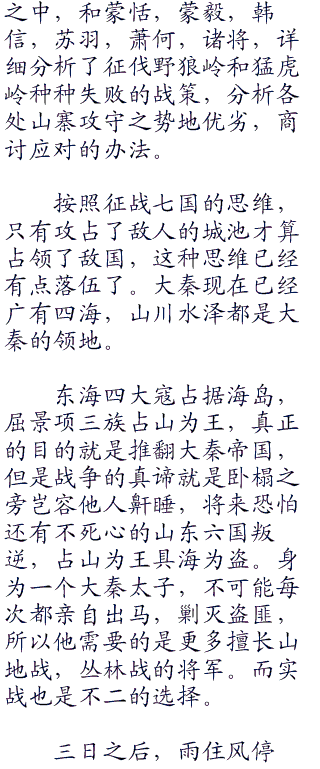 之中，和蒙恬，蒙毅，韩
信，苏羽，萧何，诸将，详
细分析了征伐野狼岭和猛虎
岭种种失败的战策，分析各
处山寨攻守之势地优劣，商
讨应对的办法。
按照征战七国的思维，
只有攻占了敌人的城池才算
占领了敌国，这种思维已经
有点落伍了。大秦现在已经
广有四海，山川水泽都是大
秦的领地。
东海四大寇占据海岛，
屈景项三族占山为王，真正
的目的就是推翻大秦帝国，
但是战争的真谛就是卧榻之
旁岂容他人鼾睡，将来恐怕
还有不死心的山东六国叛
逆，占山为王具海为盗。身
为一个大秦太子，不可能每
次都亲自出马，剿灭盗匪，
所以他需要的是更多擅长山
地战，丛林战的将军。而实
战也是不二的选择。
三日之后，雨住风停